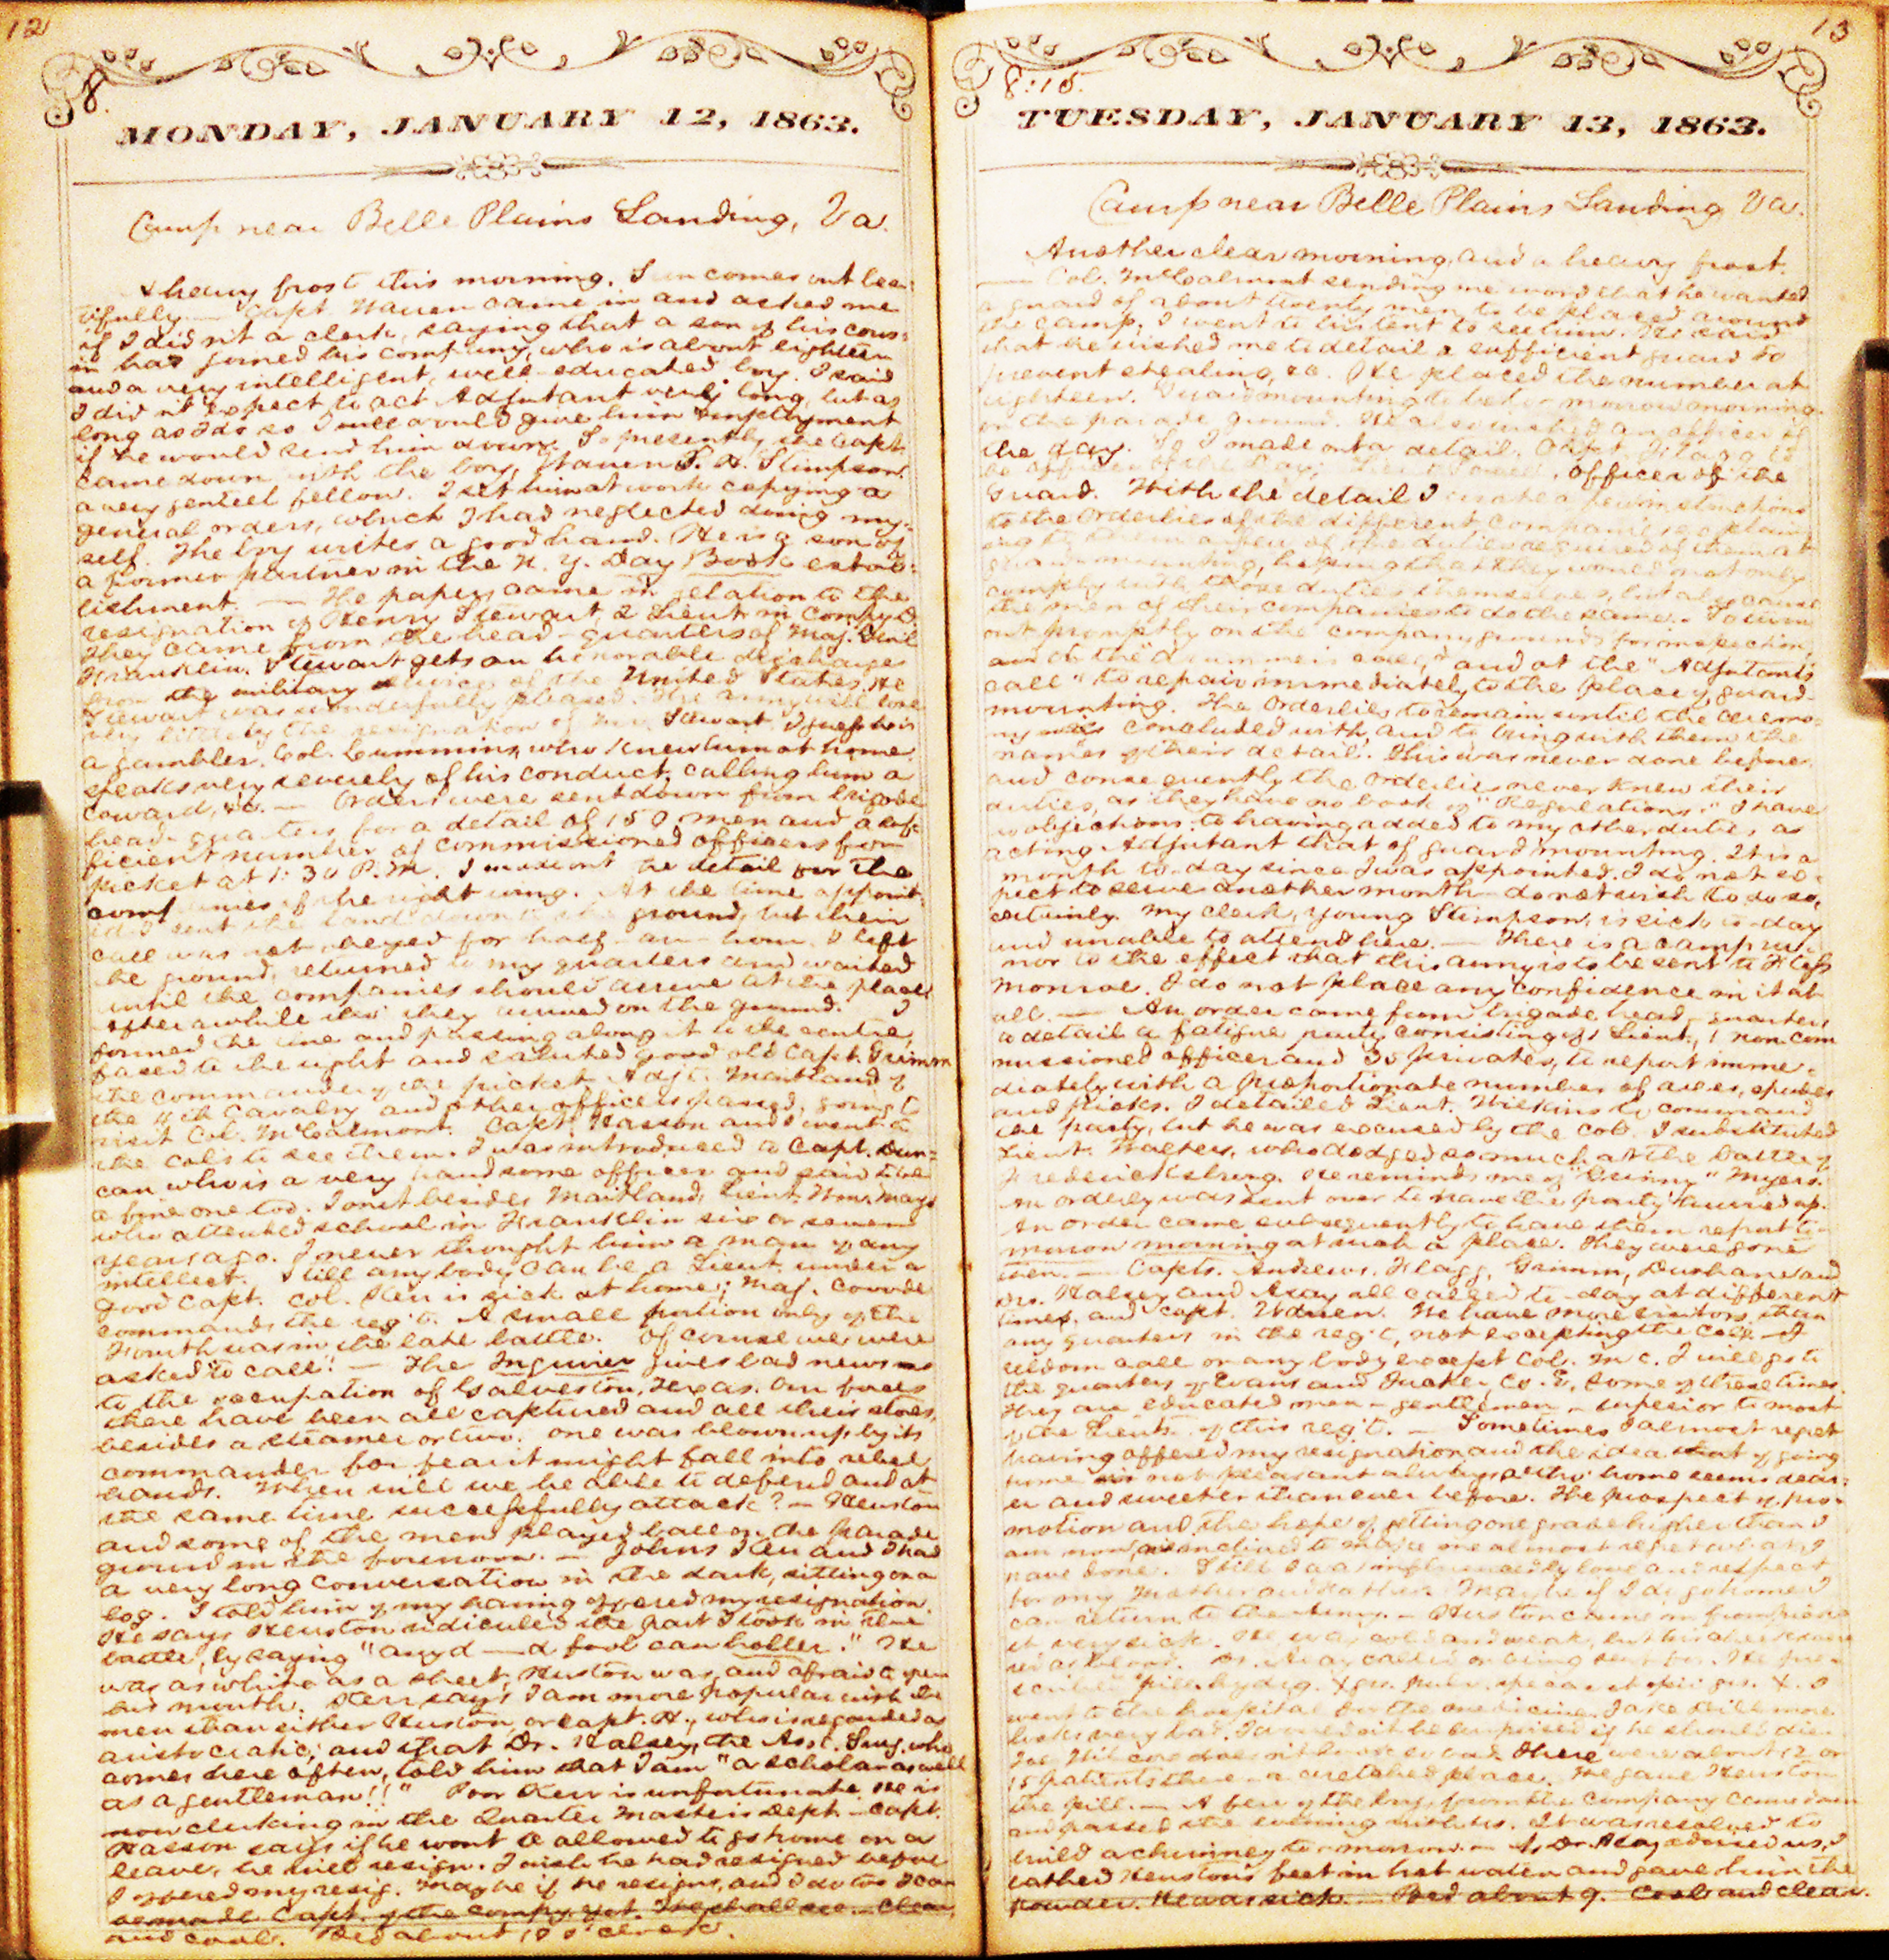 12
8.
MONDAY, JANUARY 12, 1863.
Camp near Belle Plains Landing, Va.
A heavy frost this morning. Sun comes out beau-
tifully. — Capt. Warren came in and asked me
if I didn't a clerk, saying that a son of his cous-
in had joined his company, who is about eighteen
and a very intelligent, well-educated boy. I said
I didn't expect to act Adjutant very long, but as
long as I do so I would give him employment
if he would send him down. So presently the Capt.
came down with the boy, Warren S. H. Stimpson,
a very genteel fellow. I set him at work copying a
general orders, which I had neglected doing my-
self. The boy writes a good hand. He is a son of
a former partner in the N. Y. Day Book estab-
lishment. — The papers came in relation to the
resignation of Henry Stewart, 2 Lieut. in Comp'y D.
They came from the head-quarters of Maj. Gen'l
Franklin. Stewart gets an honorable discharge
from the military service of the United States. He
Stewart was wonderfully pleased. The army will lose
very little by the resignation of Mr. Stewart. I guess he is
a gambler. Col. Cummins, who knew him at home
speaks very severely of his conduct, calling him a
coward, &c. — Orders were sent down from brigade
head-quarters for a detail of 150 men and a suf-
ficient number of commissioned officers for
picket at 1:30 P.M. I made out the detail for the
companies of the right wing. At the time appoint-
ed I sent the band down to the ground, but their
call was not obeyed for half-an-hour. I left
the ground, returned to my quarters and waited
until the companies should arrive at the place.
After awhile they arrived on the ground. I
formed the line and passing along it to the centre,
faced to the right and saluted good old Capt. Grimm
the commander of the picket. Adj't. Maitland of
the 4th Cavalry and other officers passed, going to
visit Col. McCalmont. Capt. Hasson and I went to
the Col's to see them. I was introduced to Capt. Dun-
can who is a very handsome officer and said to be
a fine one too. I met besides Maitland, Lieut. Wm. Mays
who attended school in Franklin six or seven
years ago. I never thought him a man of any
intellect. Still any body can be a Lieut. under a
good Capt. Col. Kerr is sick at home; Maj. Covode
commands the reg't. A small portion only of the
Fourth was in the late battle. Of course we were
asked to call! — The Inquirer gives bad news as
to the occupation of Galveston, Texas. Our forces
there have been all captured and all their stores,
besides a steamer or two. One was blown up by its
commander for fear it might fall into rebel
hands. When will we be able to defend and at
the same time successfully attack? — Heuston
and some of the men played ball on the parade
ground in the forenoon. — Johns Kerr and I had
a very long conversation in the dark, sitting on a
log. I told him of my having offered my resignation.
He says Heuston ridiculed the part I took in the
battle, by saying "any d——d fool can holler." He
was as white as a sheet, Heuston was, and afraid to open
his mouth. Kerr says I am more popular with the
men than either Heuston or Capt. H., who is regarded as
aristocratic; and that Dr. Halsey, the Ass't. Surg. who
comes here often, told him that I am "a scholar as well
as a gentleman!!" Poor Kerr is unfortunate. He is
now clerking in the Quarter Master's Dept. — Capt.
Hasson says if he wont be allowed to go home on a
leave, he will resign. I wish he had resigned before
I offered my resig. Maybe if he resigns, and I do too I can
be made Capt. of the comp'y yet. We shall see. — Clear
and cool. Bed about 10 o'clock.
13
8:15.
TUESDAY, JANUARY 13, 1863.
Camp near Belle Plains Landing Va.
Another clear morning and a heavy frost.
— Col. McCalmont sending me word that he wanted
a guard of about twenty men to be placed around
the camp, I went to his tent to see him. He said
that he wished me to detail a sufficient guard to
prevent stealing, &c. He placed the number at
eighteen. Guard mounting to be to-morrow morning
on the parade ground. He also wished an officer of
the day. So I made out a detail. Capt. Flagg to
be officer of the Day, Lieut. officer of the
Guard. With the detail I wrote a few instructions
to the Orderlies of the different companies, explain-
ing to them a few of the duties required of them at
guard mounting, hoping that they would not only
comply with those duties themselves, but also cause
the men of their companies to do the same. To turn
out promptly on the company grounds for inspection,
at the "drummer's call," and at the "Adjutant's
call" to repair immediately to the place of guard-
mounting. The Orderlies to remain until the ceremo-
ny is concluded with, and to bring with them the
names of their detail. This was never done before
and consequently the Orderlies never knew their
duties, as they have no book of "Regulations." I have
no objections to having added to my other duties, as
acting Adjutant that of guard mounting. It is a
month to-day since I was appointed. I do not ex-
pect to serve another month — do not wish to do so,
certainly. My clerk, young Stimpson, is sick to-day
and unable to attend here. — There is a camp ru-
mor to the effect that this army is to be sent to Fortress
Monroe. I do not place any confidence in it at
all. — An order came from brigade head-quarters
to detail a fatigue party consisting of 1 Lieut., 1 non com
missioned officer and 30 privates, to report imme-
diately with a proportionate number of axes, spades
and picks. I detailed Lieut. Wilkins to command
the party, but he was excused by the Col. I substituted
Lieut. Walters, who dodged so much at the battle of
Fredericksburg. He reminds me of Myers.
An orderly was sent over to have the party hurried up.
An order came subsequently to have them report to-
morrow morning at such a place. They were gone
then. — Capts. Andrews, Flagg, Grimm, Dushane and
Drs. Halsey and Asay all called to-day at different
times, and Capt. Warren. We have more visitors than
any quarters in the reg't, not excepting the Col's. — I
seldom call on any body except Col. Mc C. I will go to
the quarters of Evans and Tucker, Co. E, some of these times.
They are educated men — gentlemen — superior to most
of the Lieuts. of this reg't. — Sometimes I almost regret
having offered my resignation and the idea that of going
home is not pleasant always altho' home seems dear-
er and sweeter than ever before. The prospect of pro-
motion and the hope of getting one grade higher than I
am now, is inclined to make me almost regret what I
have done. Still I was influenced by love and respect
for my Mother and Father. Maybe if I do go home I
can return to the Army. — Heuston came in from picket
very sick. He was cold and weak, but his cheeks were
red as blood. Dr. Asay called on being sent for. He pre-
scribed pill. hydrg. X grs. pulv. ipecac et opii grs. X. I
went to the hospital for the medicine. Jake
looks very bad. I wouldn't be surprised if he should die.
Joe doesn't look so bad. There were about 12 or
15 patients there — a wretched place. We gave Heuston
the pill. — A few of the boys from the company came down
and passed the evening with us. It was resolved to
build a chimney to-morrow. — As Dr. Asay advised us, I
bathed Heuston's feet in hot water and gave him the
powder. He was sick. — Bed about 9. Cool and clear.